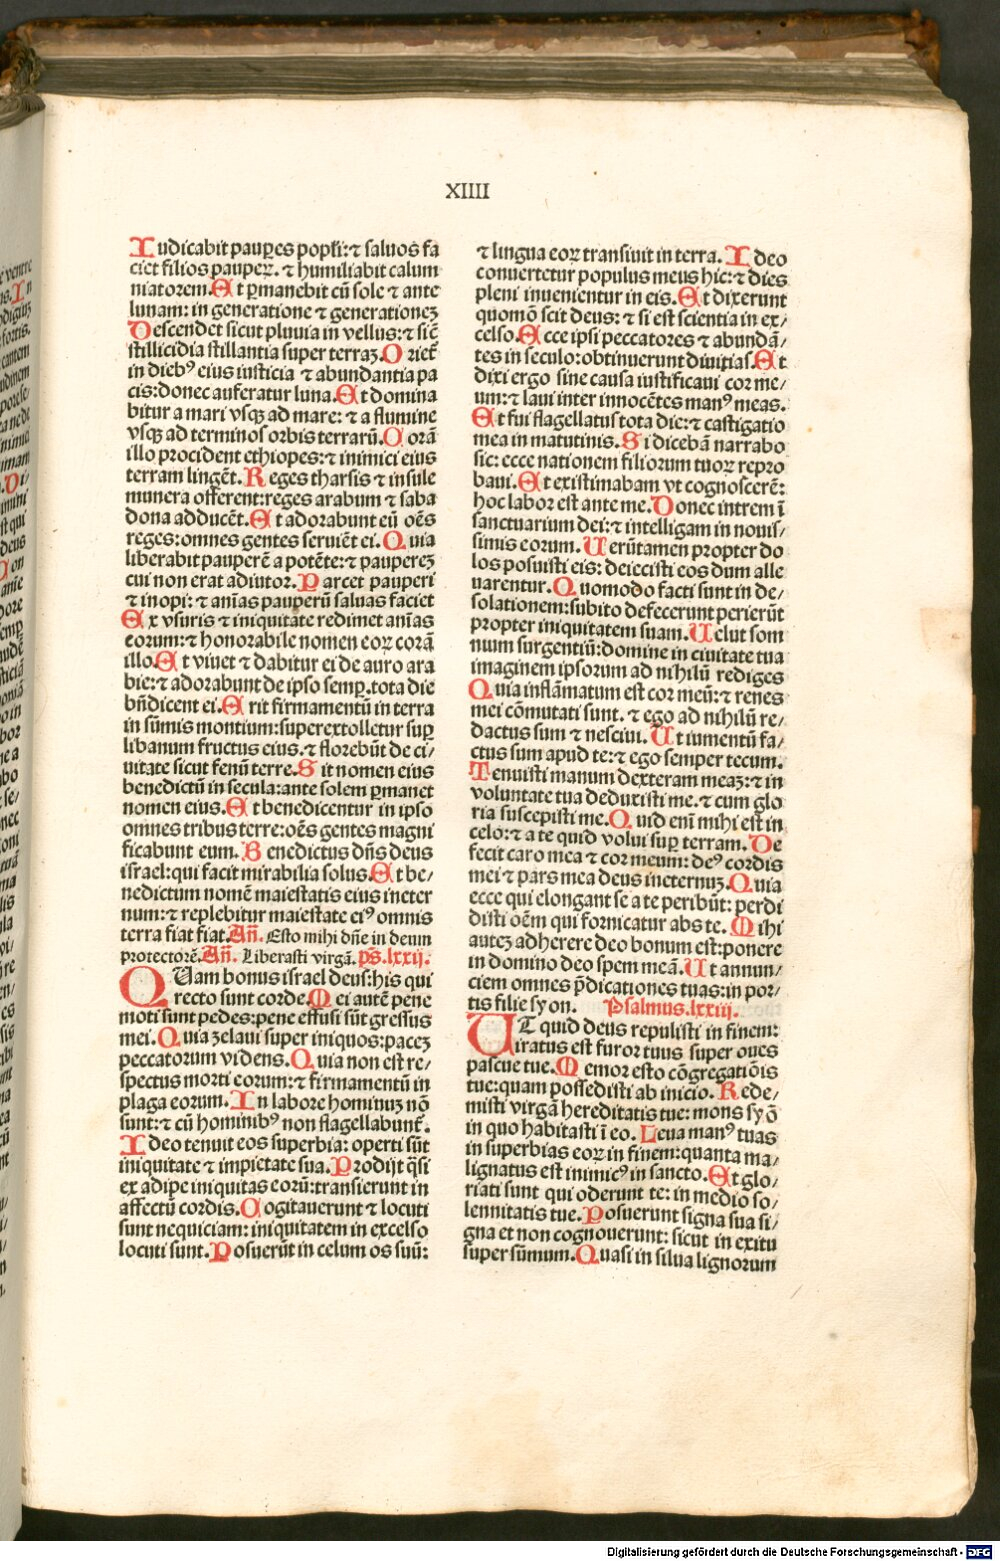 XIIII
Iudicabit paup̲es popl̓i: ⁊ saluos fa
ciet filios pauperꝝ. ⁊ humiliabit calum
niatorem. Et p̲manebit cū sole ⁊ ante
lunam: in generatione ⁊ generationeꝫ
Descendet sicut pluuia in vellus: ⁊ sic̄
stillicidia stillantia super terraꝫ. Oriet̄
in diebꝰ eius iusticia ⁊ abundantia pa
cis: donec auferatur luna. Et domina
bitur a mari vsqꝫ ad mare: ⁊ a flumine
vsqꝫ ad terminos orbis terrarū. Corā
illo procident ethiopes: ⁊ inimici eius
terram lingēt. Reges tharsis ⁊ insule
munera offerent: reges arabum ⁊ saba
dona adducēt. Et adorabunt eū oēs
reges: omnes gentes seruiēt ei. Quia
liberabit pauperē a potēte: ⁊ paupereꝫ
cui non erat adiutor. Parcet pauperi
⁊ inopi: ⁊ aīas pauperū saluas faciet
Ex vsuris ⁊ iniquitate redimet aīas
eorum: ⁊ honorabile nomen eoꝝ corā
illo. Et viuet ⁊ dabitur ei de auro ara
bie: ⁊ adorabunt de ipso semp̲. tota die
bn̄dicent ei. Erit firmamentū in terra
in sūmis montium: superextolletur sup̲
libanum fructus eius. ⁊ florebūt de ci/
uitate sicut fenū terre. Sit nomen eius
benedictū in secula: ante solem p̲manet
nomen eius. Et benedicentur in ipso
omnes tribus terre: oēs gentes magni
ficabunt eum. Benedictus dn̄s deus
israel: qui facit mirabilia solus. Et be/
nedictum nomē maiestatis eius ineter
num: ⁊ replebitur maiestate eiꝰ omnis
terra fiat fiat. An̄. Esto mihi dn̄e in deum
protectorē. An̄. Liberasti virgā. ps̄. lxxij.
QUam bonus israel deus: his qui
recto sunt corde. Mei autē pene
moti sunt pedes: pene effusi sūt gressus
mei. Quia zelaui super iniquos: paceꝫ
peccatorum videns. Quia non est re/
spectus morti eorum: ⁊ firmamentū in
plaga eorum. In labore hominuꝫ nō
sunt: ⁊ cū hominibꝰ non flagellabunt̄.
Ideo tenuit eos superbia: operti sūt
iniquitate ⁊ impietate sua. Prodijt q̄si
ex adipe iniquitas eorū: transierunt in
affectū cordis. Cogitauerunt ⁊ locuti
sunt nequiciam: iniquitatem in excelso
locuti sunt. Posuerūt in celum os suū:
⁊ lingua eoꝝ transiuit in terra. Ideo
conuertetur populus meus hic: ⁊ dies
pleni inuenientur in eis. Et dixerunt
quomō scit deus: ⁊ si est scientia in ex/
celso. Ecce ipsi peccatores ⁊ abundā/
tes in seculo: obtinuerunt diuitias. Et
dixi ergo sine causa iustificaui cor me/
um: ⁊ laui inter innocētes manꝰ meas.
Et fui flagellatus tota die: ⁊ castigatio
mea in matutinis. Si dicebā narrabo
sic: ecce nationem filiorum tuoꝝ repro
baui. Et existimabam vt cognoscerē:
hoc labor est ante me. Donec intrem ī
sanctuarium dei: ⁊ intelligam in nouis/
simis eorum. Uerūtamen propter do
los posuisti eis: deiecisti eos dum alle
uarentur. Quomodo facti sunt in de/
solationem: subito defecerunt perierūt
propter iniquitatem suam. Uelut som
num surgentiū: domine in ciuitate tua
imaginem ipsorum ad nihilū rediges
Quia inflāmatum est cor meū: ⁊ renes
mei cōmutati sunt. ⁊ ego ad nihilū re/
dactus sum ⁊ nesciui. Ut iumentū fa/
ctus sum apud te: ⁊ ego semper tecum.
Tenuisti manum dexteram meaꝫ: ⁊ in
voluntate tua deduxisti me. ⁊ cum glo
ria suscepisti me. Quid enī mihi est in
celo: ⁊ a te quid volui sup̲ terram. De
fecit caro mea ⁊ cor meum: deꝰ cordis
mei ⁊ pars mea deus ineternuꝫ. Quia
ecce qui elongant se a te peribūt: perdi
disti oēm qui fornicatur abs te. Mihi
auteꝫ adherere deo bonum est: ponere
in domino deo spem meā. Ut annun/
ciem omnes p̄dicationes tuas: in por/
tis filie syon. Psalmus. lxxiij.
UT quid deus repulisti in finem:
iratus est furor tuus super oues
pascue tue. Memor esto cōgregatiōis
tue: quam possedisti ab inicio. Rede/
misti virgā hereditatis tue: mons syō
in quo habitasti ī eo. Leua manꝰ tuas
in superbias eoꝝ in finem: quanta ma/
lignatus est inimicꝰ in sancto. Et glo/
riati sunt qui oderunt te: in medio so/
lennitatis tue. Posuerunt signa sua si/
gna et non cognouerunt: sicut in exitu
super sūmum. Quasi in silua lignorum
Digitalisierung gefördert durch die Deutsche Forschungsgemeinschaft - DFG